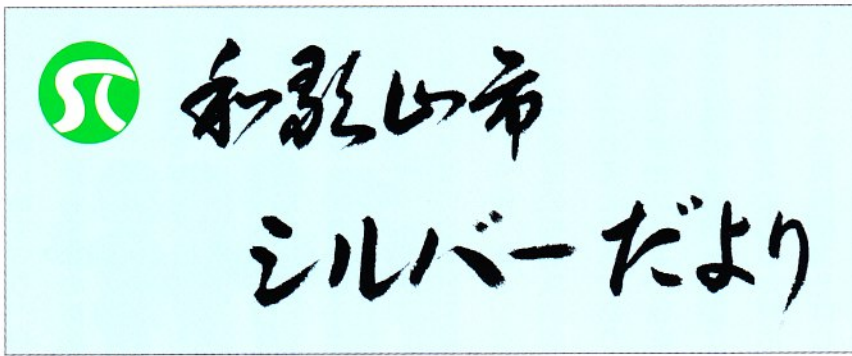 和歌山市
シルバーだより